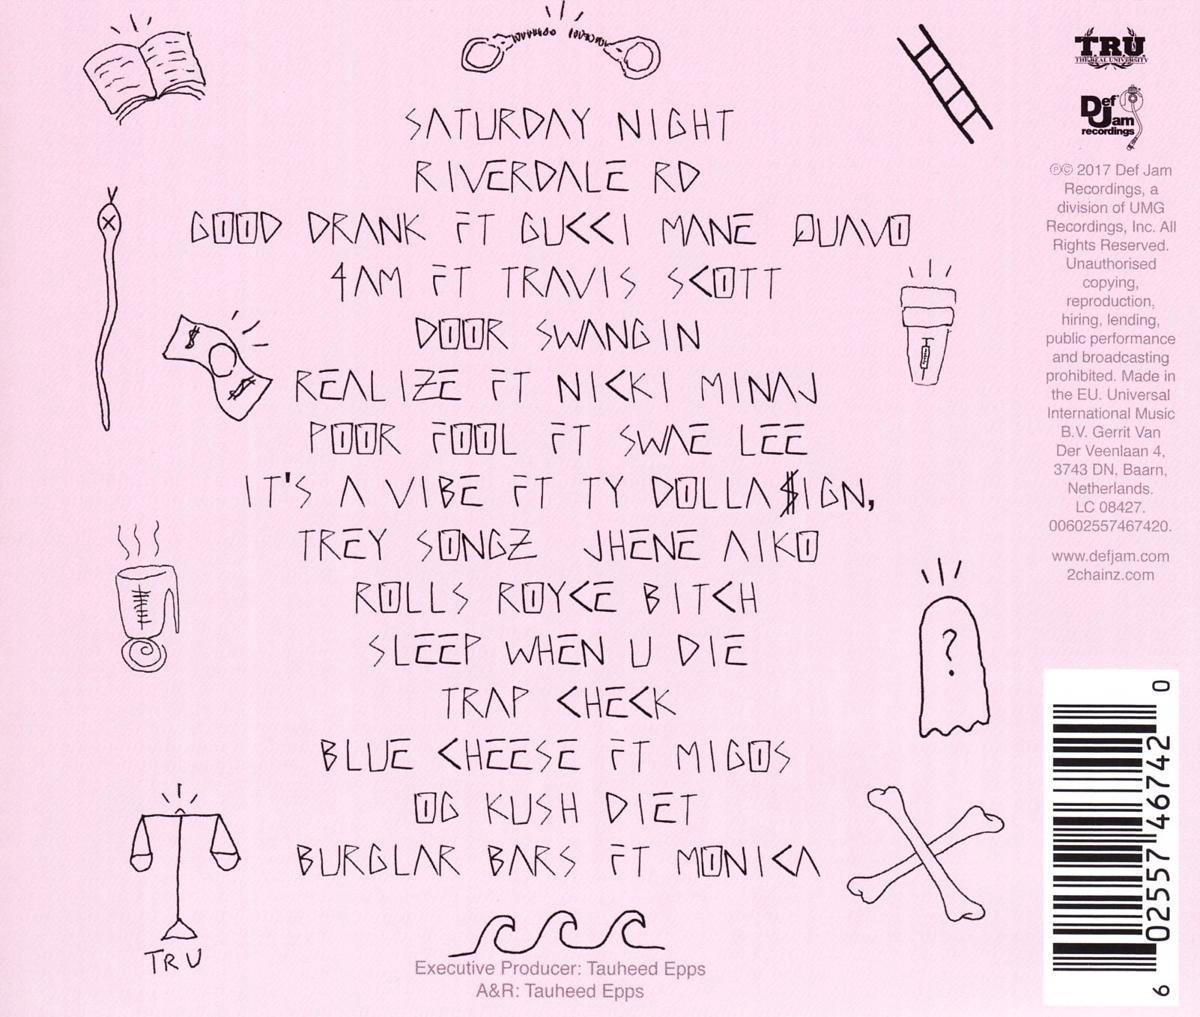 SATURDAY NIGHT
RIVERDALE RD
GOOD DRANK FT GUCCI MANE QUAVO
4AM FT TRAVIS SCOTT
DOOR SWANGIN
REALIZE FT NICKI MINAJ
POOR FOOL FT SWAE LEE
IT'S A VIBE FT TY DOLLA $IGN,
TREY SONGZ JHENE AIKO
ROLLS ROYCE BITCH
SLEEP WHEN U DIE
TRAP CHECK
BLUE CHEESE FT MIGOS
OG KUSH DIET
BURGLAR BARS FT MONICA
$
$
?
TRU
Executive Producer: Tauheed Epps
A&R: Tauheed Epps
T.R.U.
THE REAL UNIVERSITY
Def
Jam
recordings
℗© 2017 Def Jam
Recordings, a
division of UMG
Recordings, Inc. All
Rights Reserved.
Unauthorised
copying,
reproduction,
hiring, lending,
public performance
and broadcasting
prohibited. Made in
the EU. Universal
International Music
B.V. Gerrit Van
Der Veenlaan 4,
3743 DN, Baarn,
Netherlands.
LC 08427.
00602557467420.
www.defjam.com
2chainz.com
6 02557 46742 0